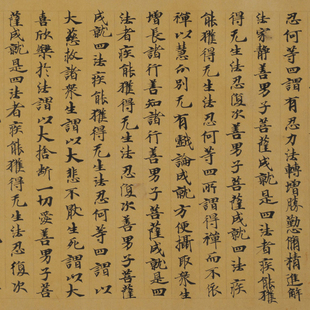 忍何等四謂有忍力法轉增勝懃精進解
法寂静善男子菩薩成就是四法者疾能獲
得无生法忍復次善男子菩薩成就四法疾
能獲得无生法忍何等四所謂得禪而不依
禪以慧分別无有戲論成就方便攝取衆生
增長諸行善知諸行善男子菩薩成就是四
法者疾能獲得无生法忍復次善男子菩薩
成就四法疾能獲得无生法忍何等四謂以
大慈救諸衆生謂以大悲不猒生死謂以大
喜欣樂於法謂以大捨斷一切愛善男子菩
薩成就是四法者疾能獲得无生法忍復次